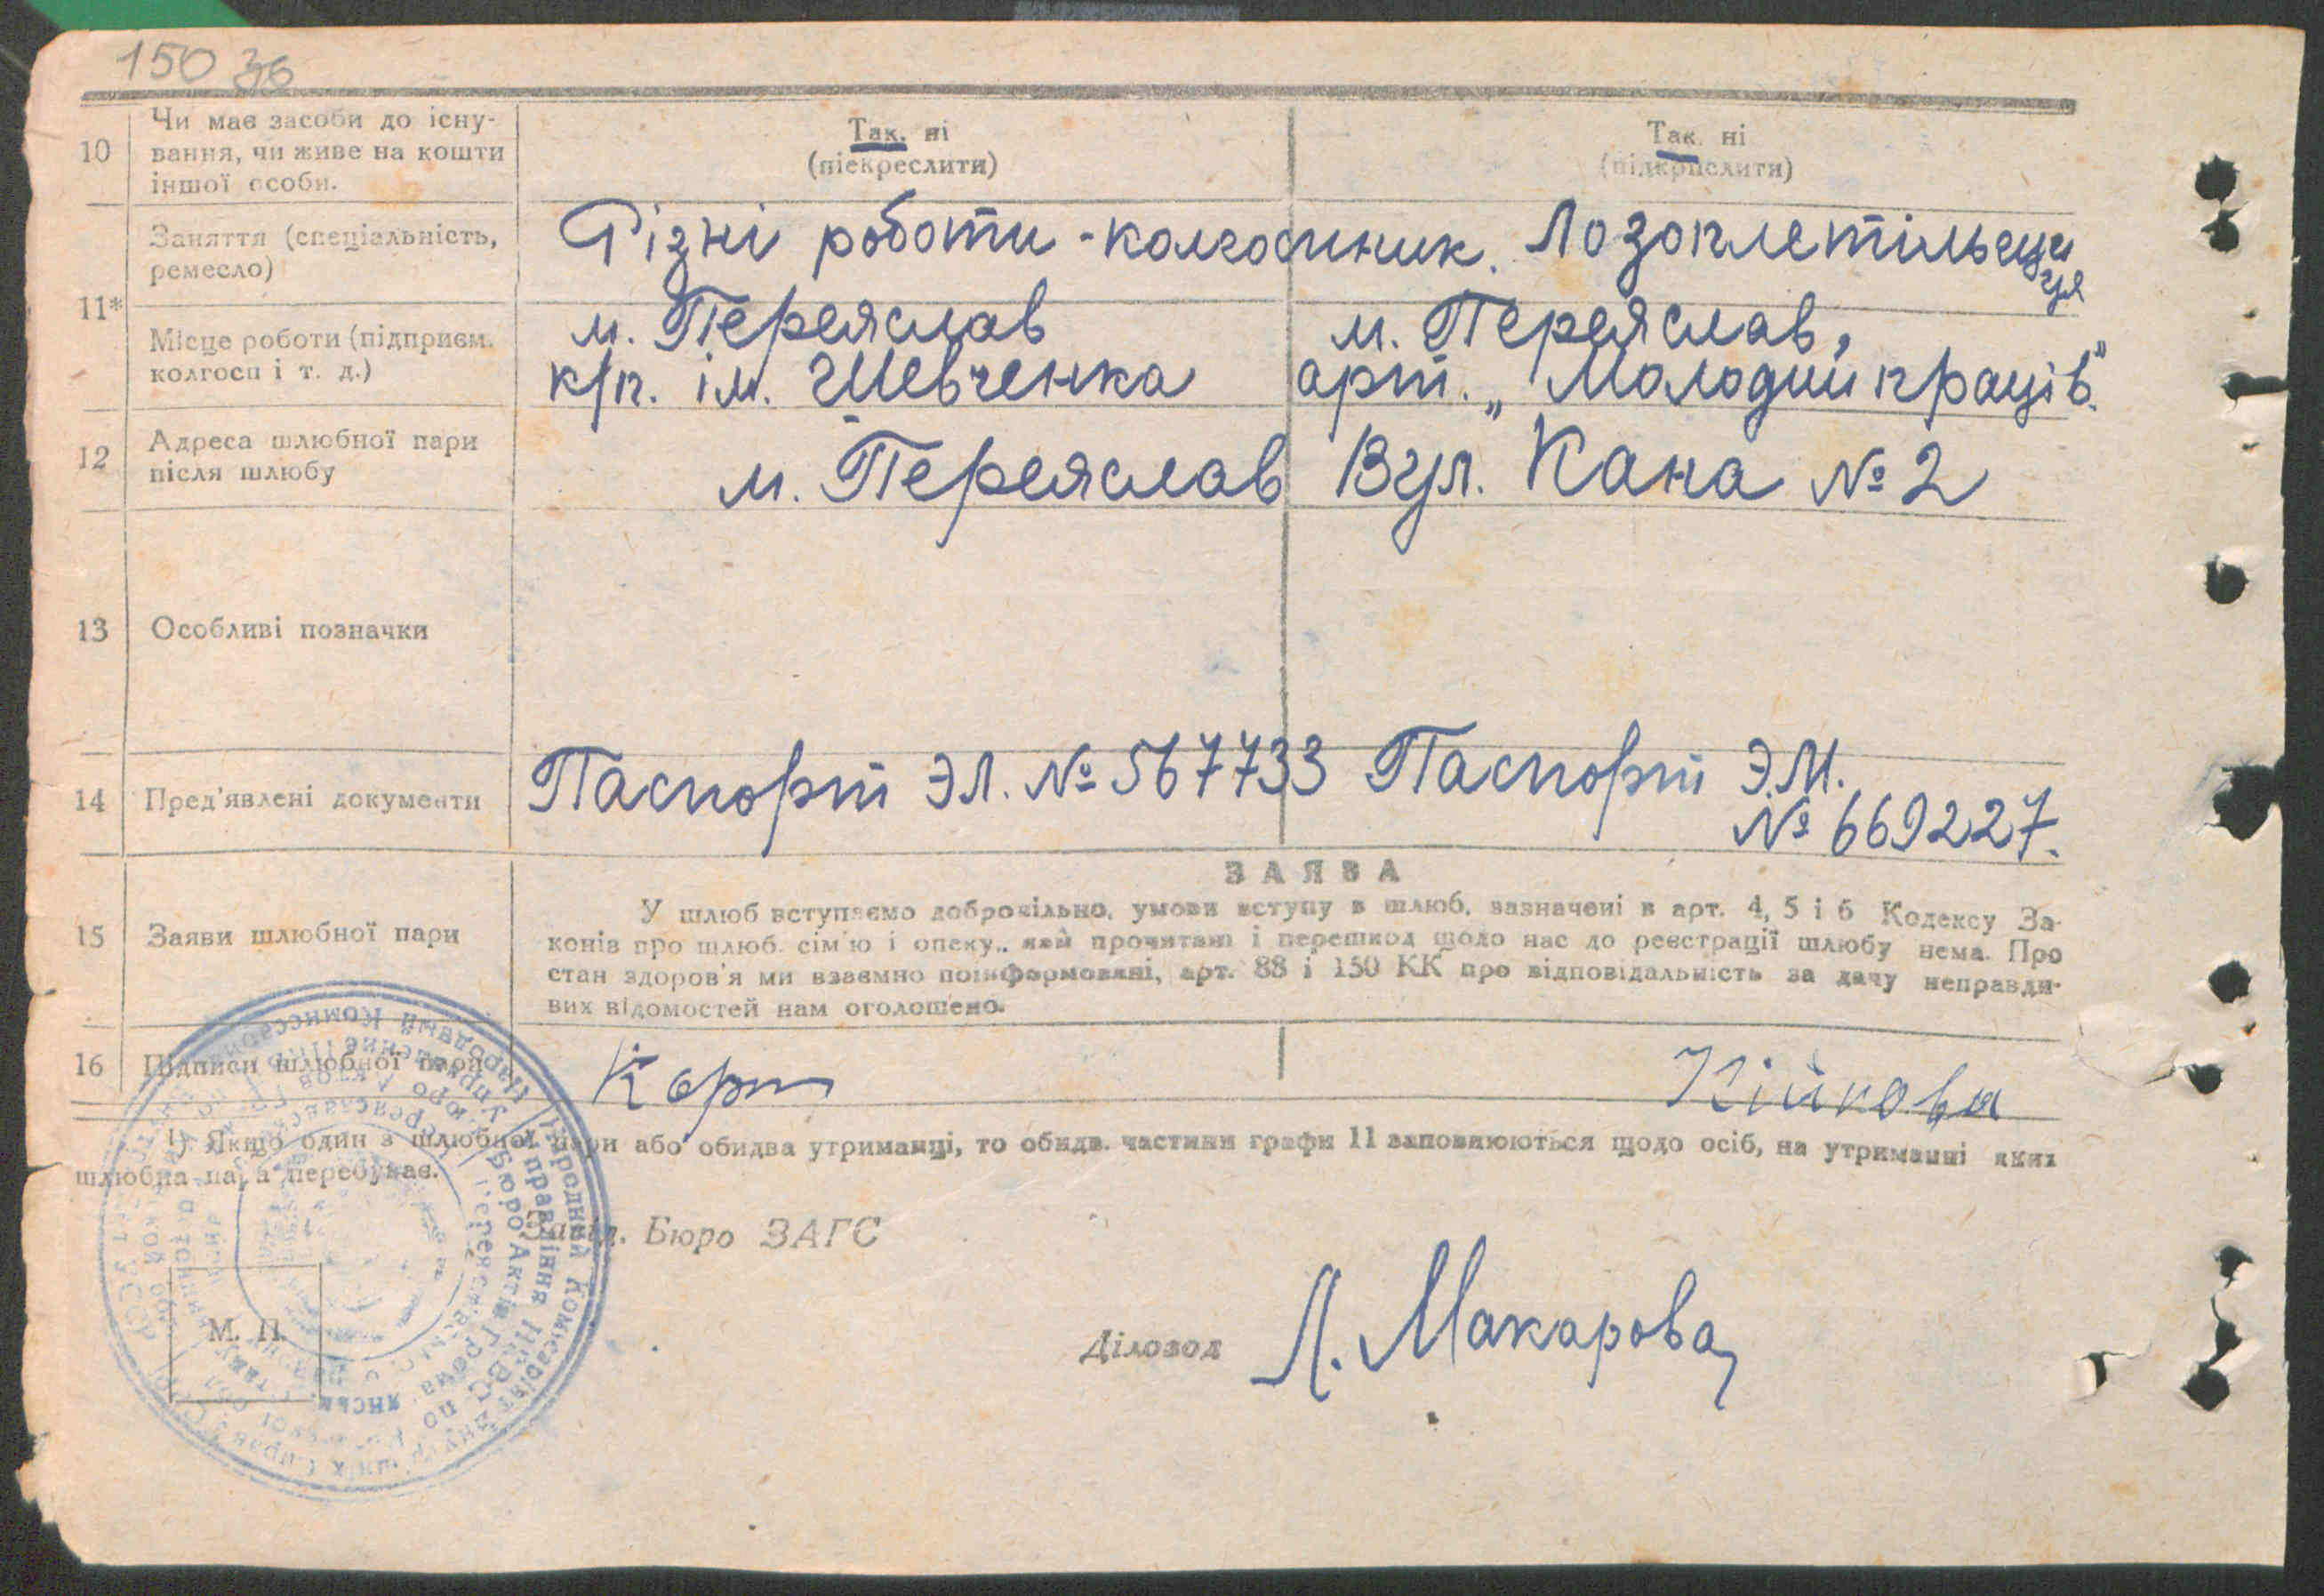 150 36
10 Чи має засоби до існу-
вання, чи живе на кошти
іншої особи.
Так. ні
(піекреслити)
Так. ні
(підкрпслити)
11*
Заняття (спеціальність,
ремесло)
Різні роботи - колгоспник.
Лозоплетільєця
ця
Місце роботи (підприєм.
колгосп і т. д.)
м. Переяслав
к/п. ім. Шевченка
м. Переяслав,
арт. „Молодий праців."
12 Адреса шлюбної пари
після шлюбу
м. Переяслав Вул. Кана № 2
13 Особливі позначки
14 Пред'явлені документи
Паспорт ЭЛ. № 567733
Паспорт Э.М.
№ 669227.
15 Заяви шлюбної пари
ЗАЯВА
У шлюб вступаємо добровільно, умови вступу в шлюб, зазначені в арт. 4, 5 і 6 Кодексу За-
конів про шлюб. сім'ю і опеку., нам прочитані і перешкод щодо нас до реєстрації шлюбу нема. Про
стан здоров'я ми взаємно поінформовані, арт. 88 і 150 КК про відповідальність за дачу неправди-
вих відомостей нам оголошено.
16 Підписи шлюбної пари
Корт
Кійкова
¹) Якщо один з шлюбної пари або обидва утриманці, то обидв. частини графи 11 заповнюються щодо осіб, на утриманні яких
шлюбна пара перебуває.
Завід. Бюро ЗАГС
М. П.
Діловод Л. Макарова